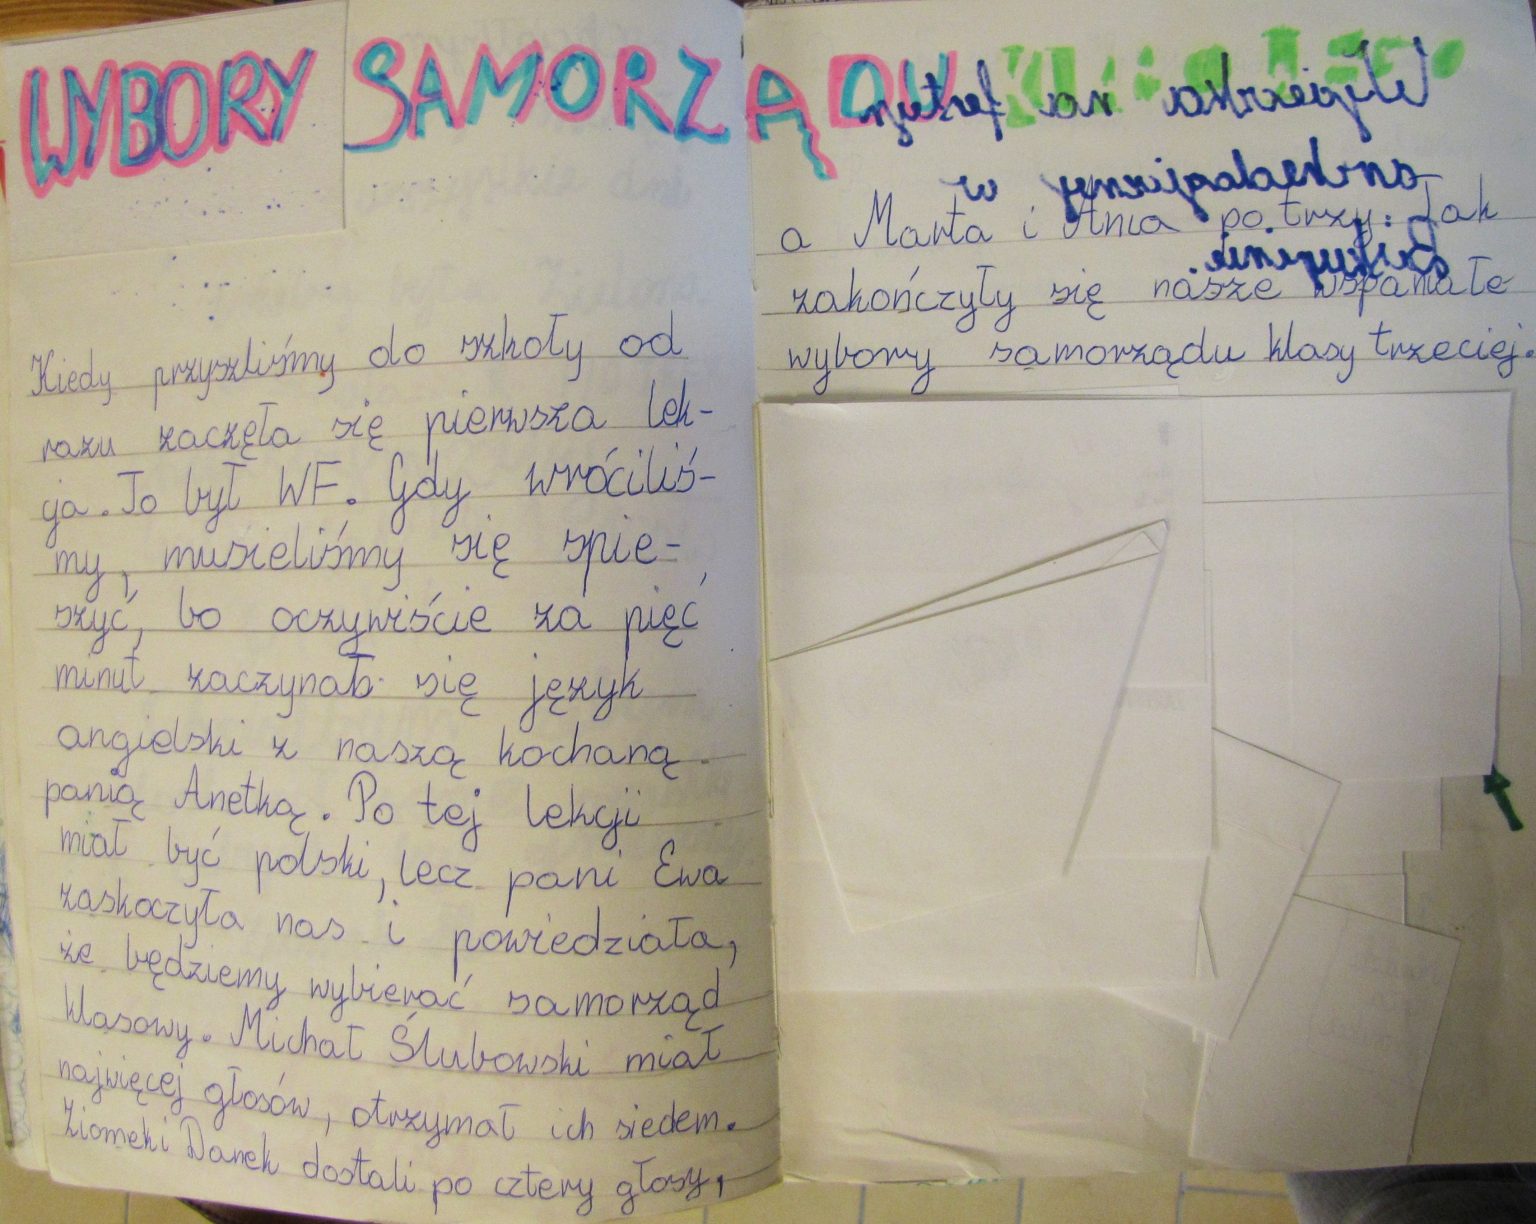 WYBORY SAMORZĄDU
Kiedy przyszliśmy do szkoły od
razu zaczęła się pierwsza lek-
cja. To był WF. Gdy wróciliś-
my, musieliśmy się spie-
szyć, bo oczywiście za pięć
minut zaczynał się język
angielski z naszą kochaną
panią Anetką. Po tej lekcji
miał być polski, lecz pani Ewa
zaskoczyła nas i powiedziała,
że będziemy wybierać samorząd
klasowy. Michał Ślubowski miał
najwięcej głosów, otrzymał ich siedem.
Ziomek i Darek dostali po cztery głosy,
Wycieczka na festyn
archeologiczny w
Biskupinie
a Marta i Ania po trzy. Tak
zakończyły się nasze wspaniałe
wybory samorządu klasy trzeciej.